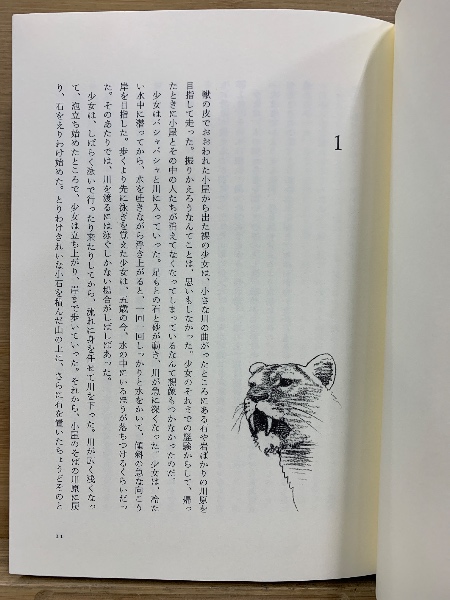 1
獣の皮でおおわれた小屋から出た裸の少女は、小さな川の曲がったところにある石や岩ばかりの川原を
目指して走った。振りかえろうなんてことは、思いもしなかった。少女のそれまでの経験からして、帰っ
たときに小屋とその中の人たちが消えてなくなってしまっているなんて想像もつかなかったのだ。
少女はバシャバシャと川に入っていった。足もとの石と砂が動き、川が急に深くなった。少女は、冷た
い水中に潜ってから、水を吐きながら浮き上がると、一回一回しっかりと水をかいて、傾斜の急な向こう
岸を目指した。歩くより先に泳ぎを覚えた少女は、五歳の今、水の中にいるほうが落ちつけるくらいだっ
た。そのあたりでは、川を渡るには泳ぐしかない場合がしばしばあった。
少女は、しばらく泳いで行ったり来たりしてから、流れに身を任せて川を下った。川が広く浅くなっ
て、泡立ち始めたところで、少女は立ち上がり、岸まで歩いていった。それから、小屋のそばの川原に戻
り、石をえりわけ始めた。とりわけきれいな小石を積んだ山の上に、さらに石を置いたちょうどそのと
11